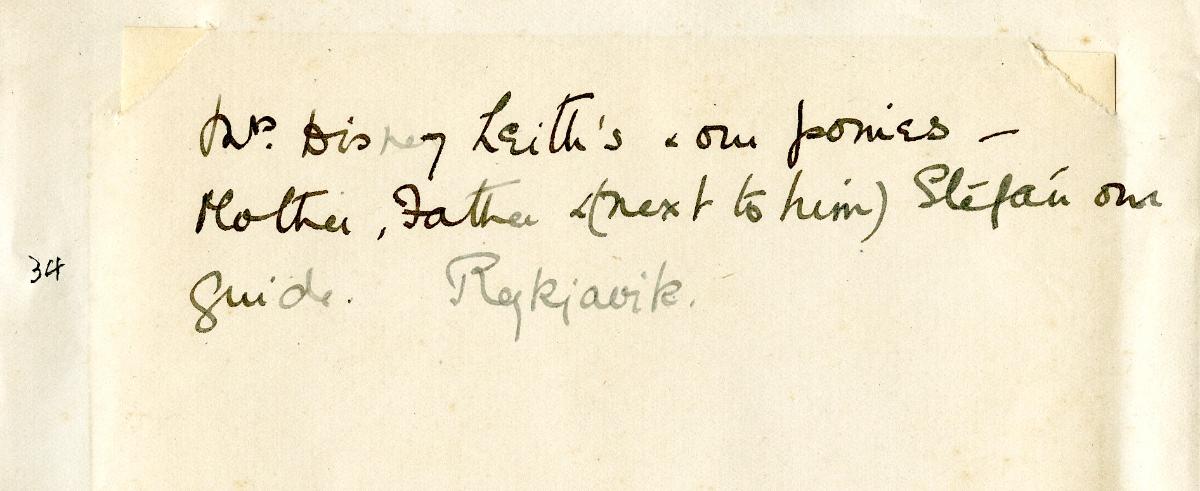 Mrs. Disney Leith's & our ponies –
Mother, Father & (next to him) Stéfán our
34
guide. Reykjavik.